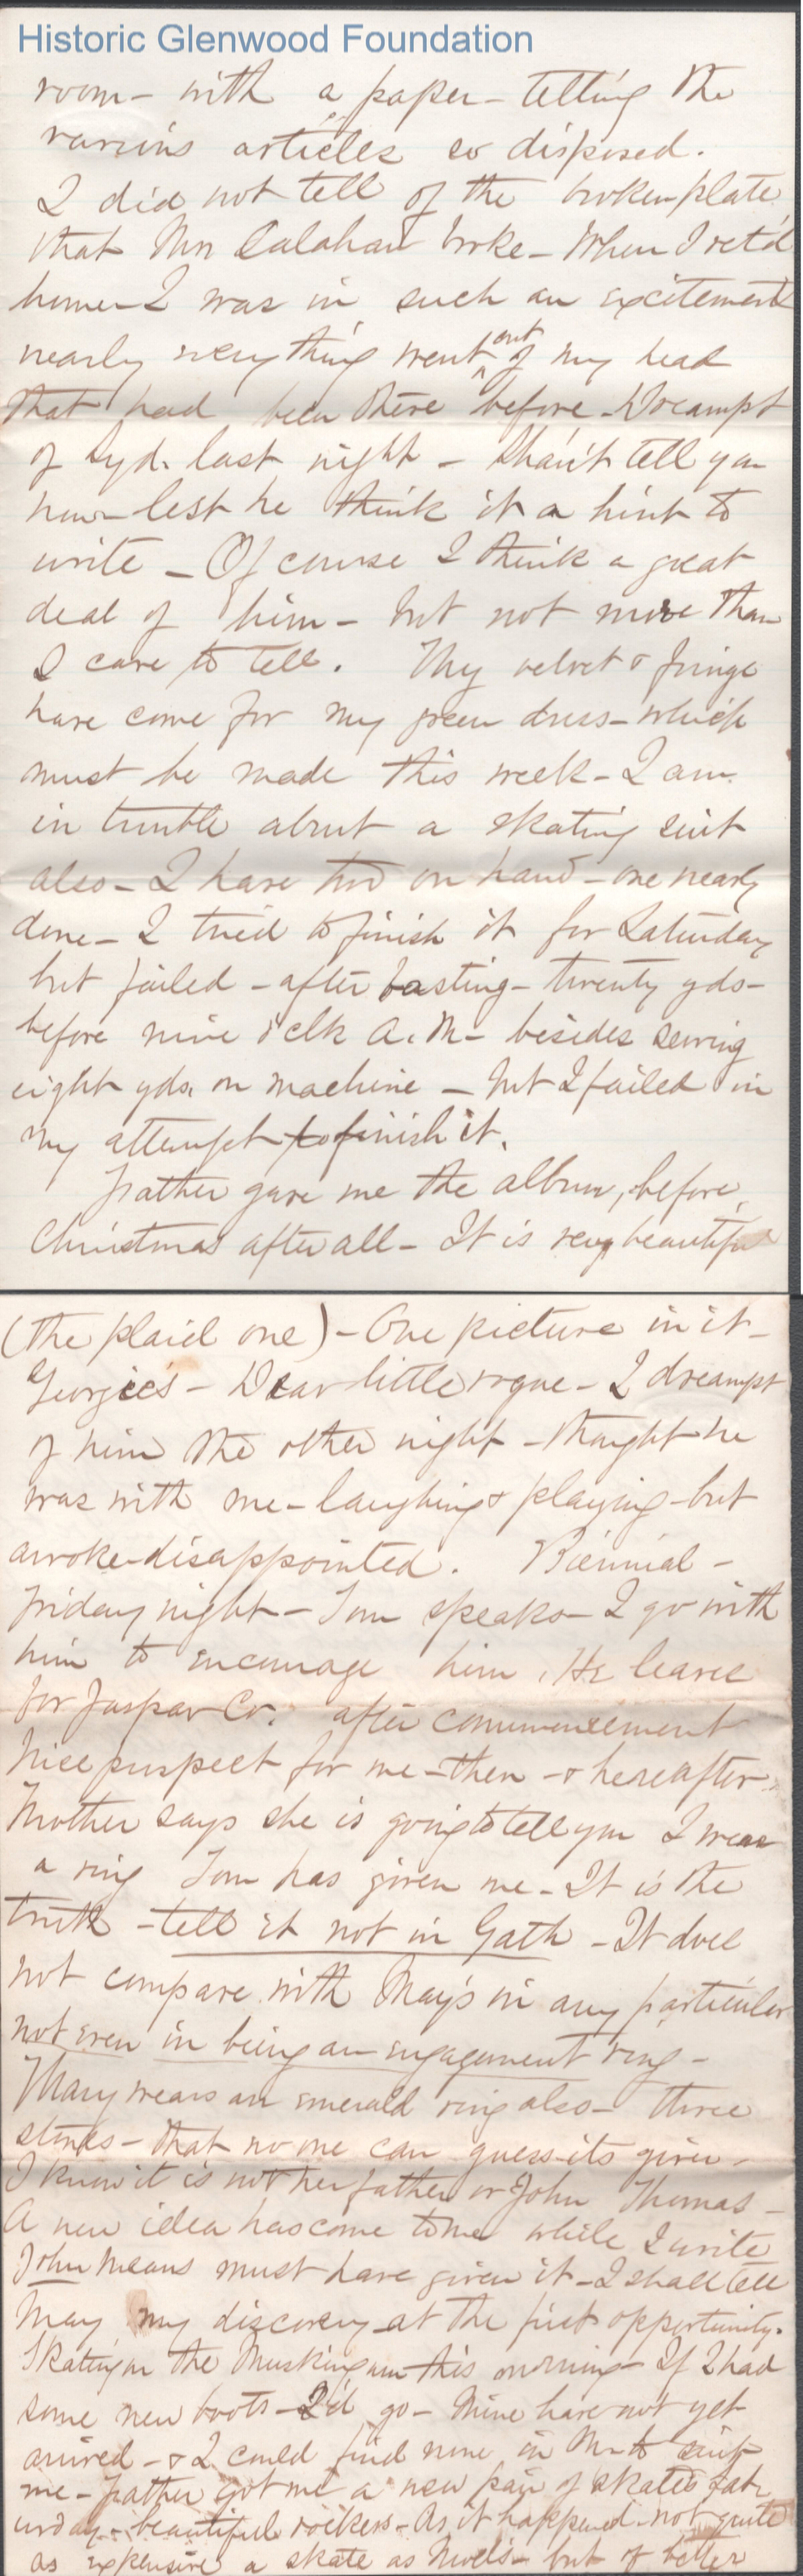 Historic Glenwood Foundation
room - with a paper - telling the
various articles so disposed.
I did not tell of the broken plate
that Mrs Calahan broke - When I ret'd
home I was in such an excitement
nearly everything went out of my head
that had been there before - Dreampt
of Syd. last night - Shan't tell you
how - lest he think it a hint to
write - Of course I think a great
deal of him - but not more than
I care to tell. My velvet & fringe
have come for my green dress - which
must be made this week - I am
in trouble about a skating suit
also - I have two on hand - one nearly
done - I tried to finish it for Saturday
but failed - after basting - twenty yds -
before nine o'clk A.M - besides sewing
eight yds. on machine - but I failed in
my attempt to finish it.
Father gave me the album, before
Christmas after all - It is very beautiful
(the plaid one) - One picture in it -
Georgie's - Dear little rogue - I dreampt
of him the other night - thought he
was with me - laughing & playing - but
awoke disappointed. Biennial -
Friday night - Tom speaks - I go with
him to encourage him. He leaves
for Jaspar Co. after commencement
Nice prospect for me - then - & hereafter.
Mother says she is going to tell you I wear
a ring Tom has given me - It is the
truth - tell it not in Gath - It does
not compare with May's in any particular
not even in being an engagement ring -
Mary wears an emerald ring also - three
stones - that no one can guess its giver -
I know it is not her father or John Thomas -
A new idea has come to me while I write
John Means must have given it - I shall tell
May my discovery at the first opportunity.
Skating on the Muskingum this morning - If I had
some new boots - I'd go - Mine have not yet
arrived - & I could find none in M - to suit
me - Father got me a new pair of skates Sat-
urday - beautiful rockers - As it happened - not quite
as expensive a skate as - but of better